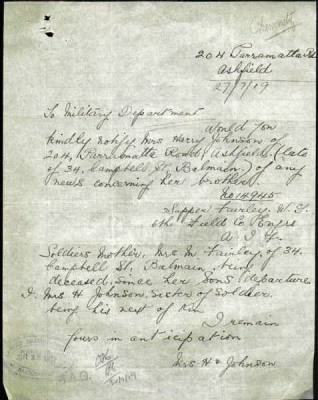 204 Parramatta Rd
Ashfield
27/7/17
To Military Department
Would you
kindly notify Mrs Harry Johnson of
204, Parramatta Road Ashfield (late
of 34, Campbell St, Balmain) of any
news concerning her brother,
No 14945
Sapper Fairley, W. J.
6th Field Co Engrs
A. I. F.
Soldiers Mother, Mrs M Fairley, of 34,
Campbell St, Balmain,
deceased, since her sons departure
I. Mrs H Johnson, Sister of Soldier.
being his next of kin
I remain
yours in anticipation
Mrs H Johnson